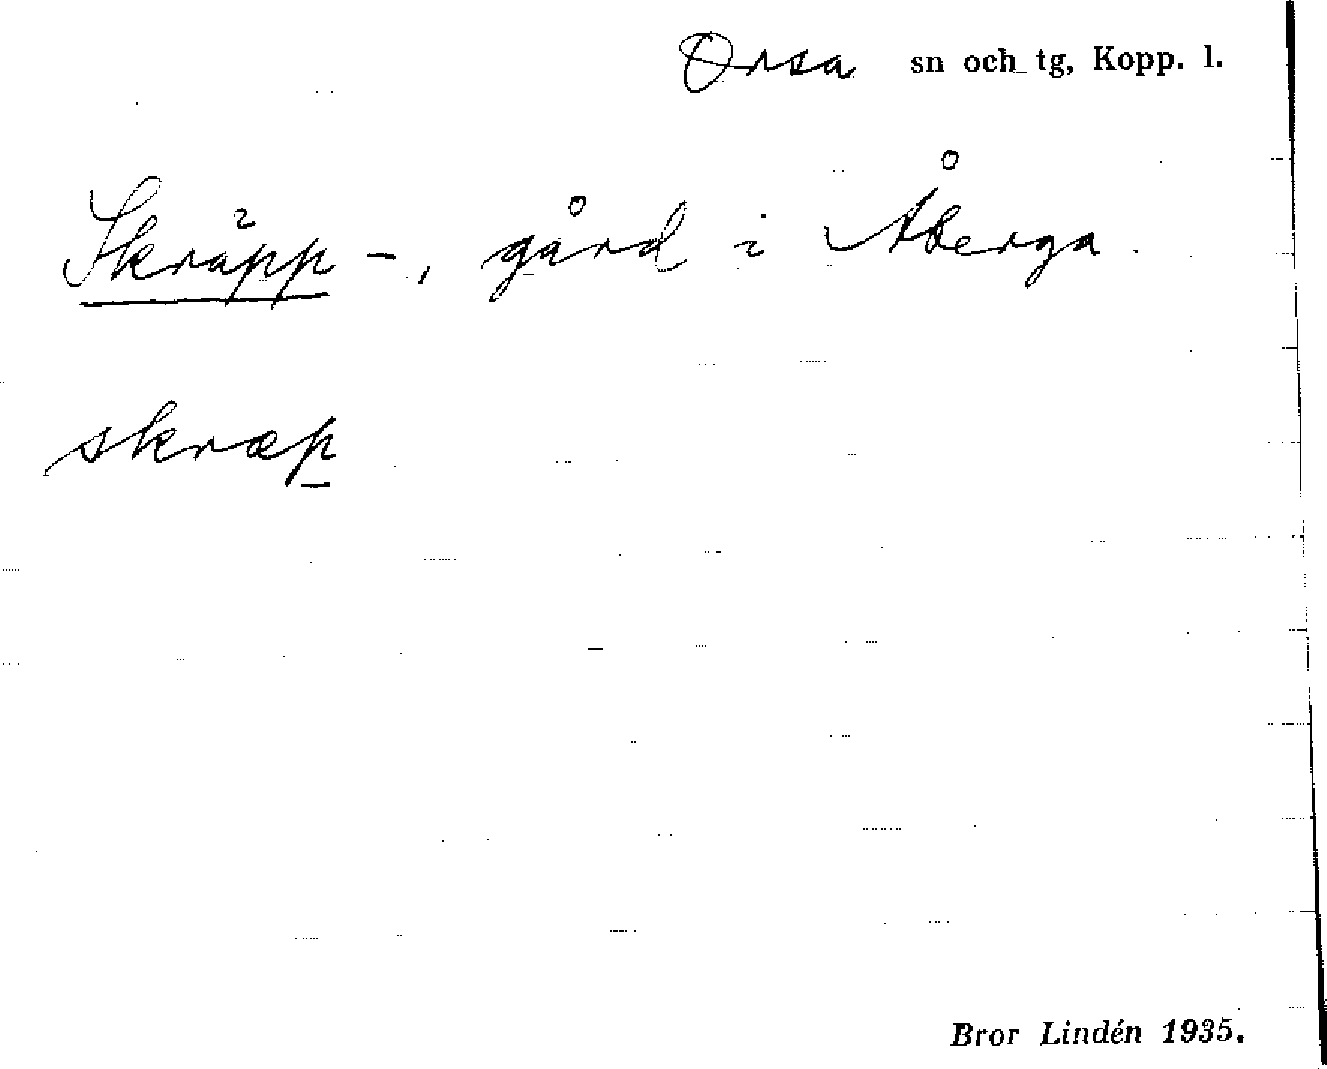 Orsa sn och tg, Kopp. l.
Skräpp-, gård i Åberga.
skræp
Bror Lindén 1935.